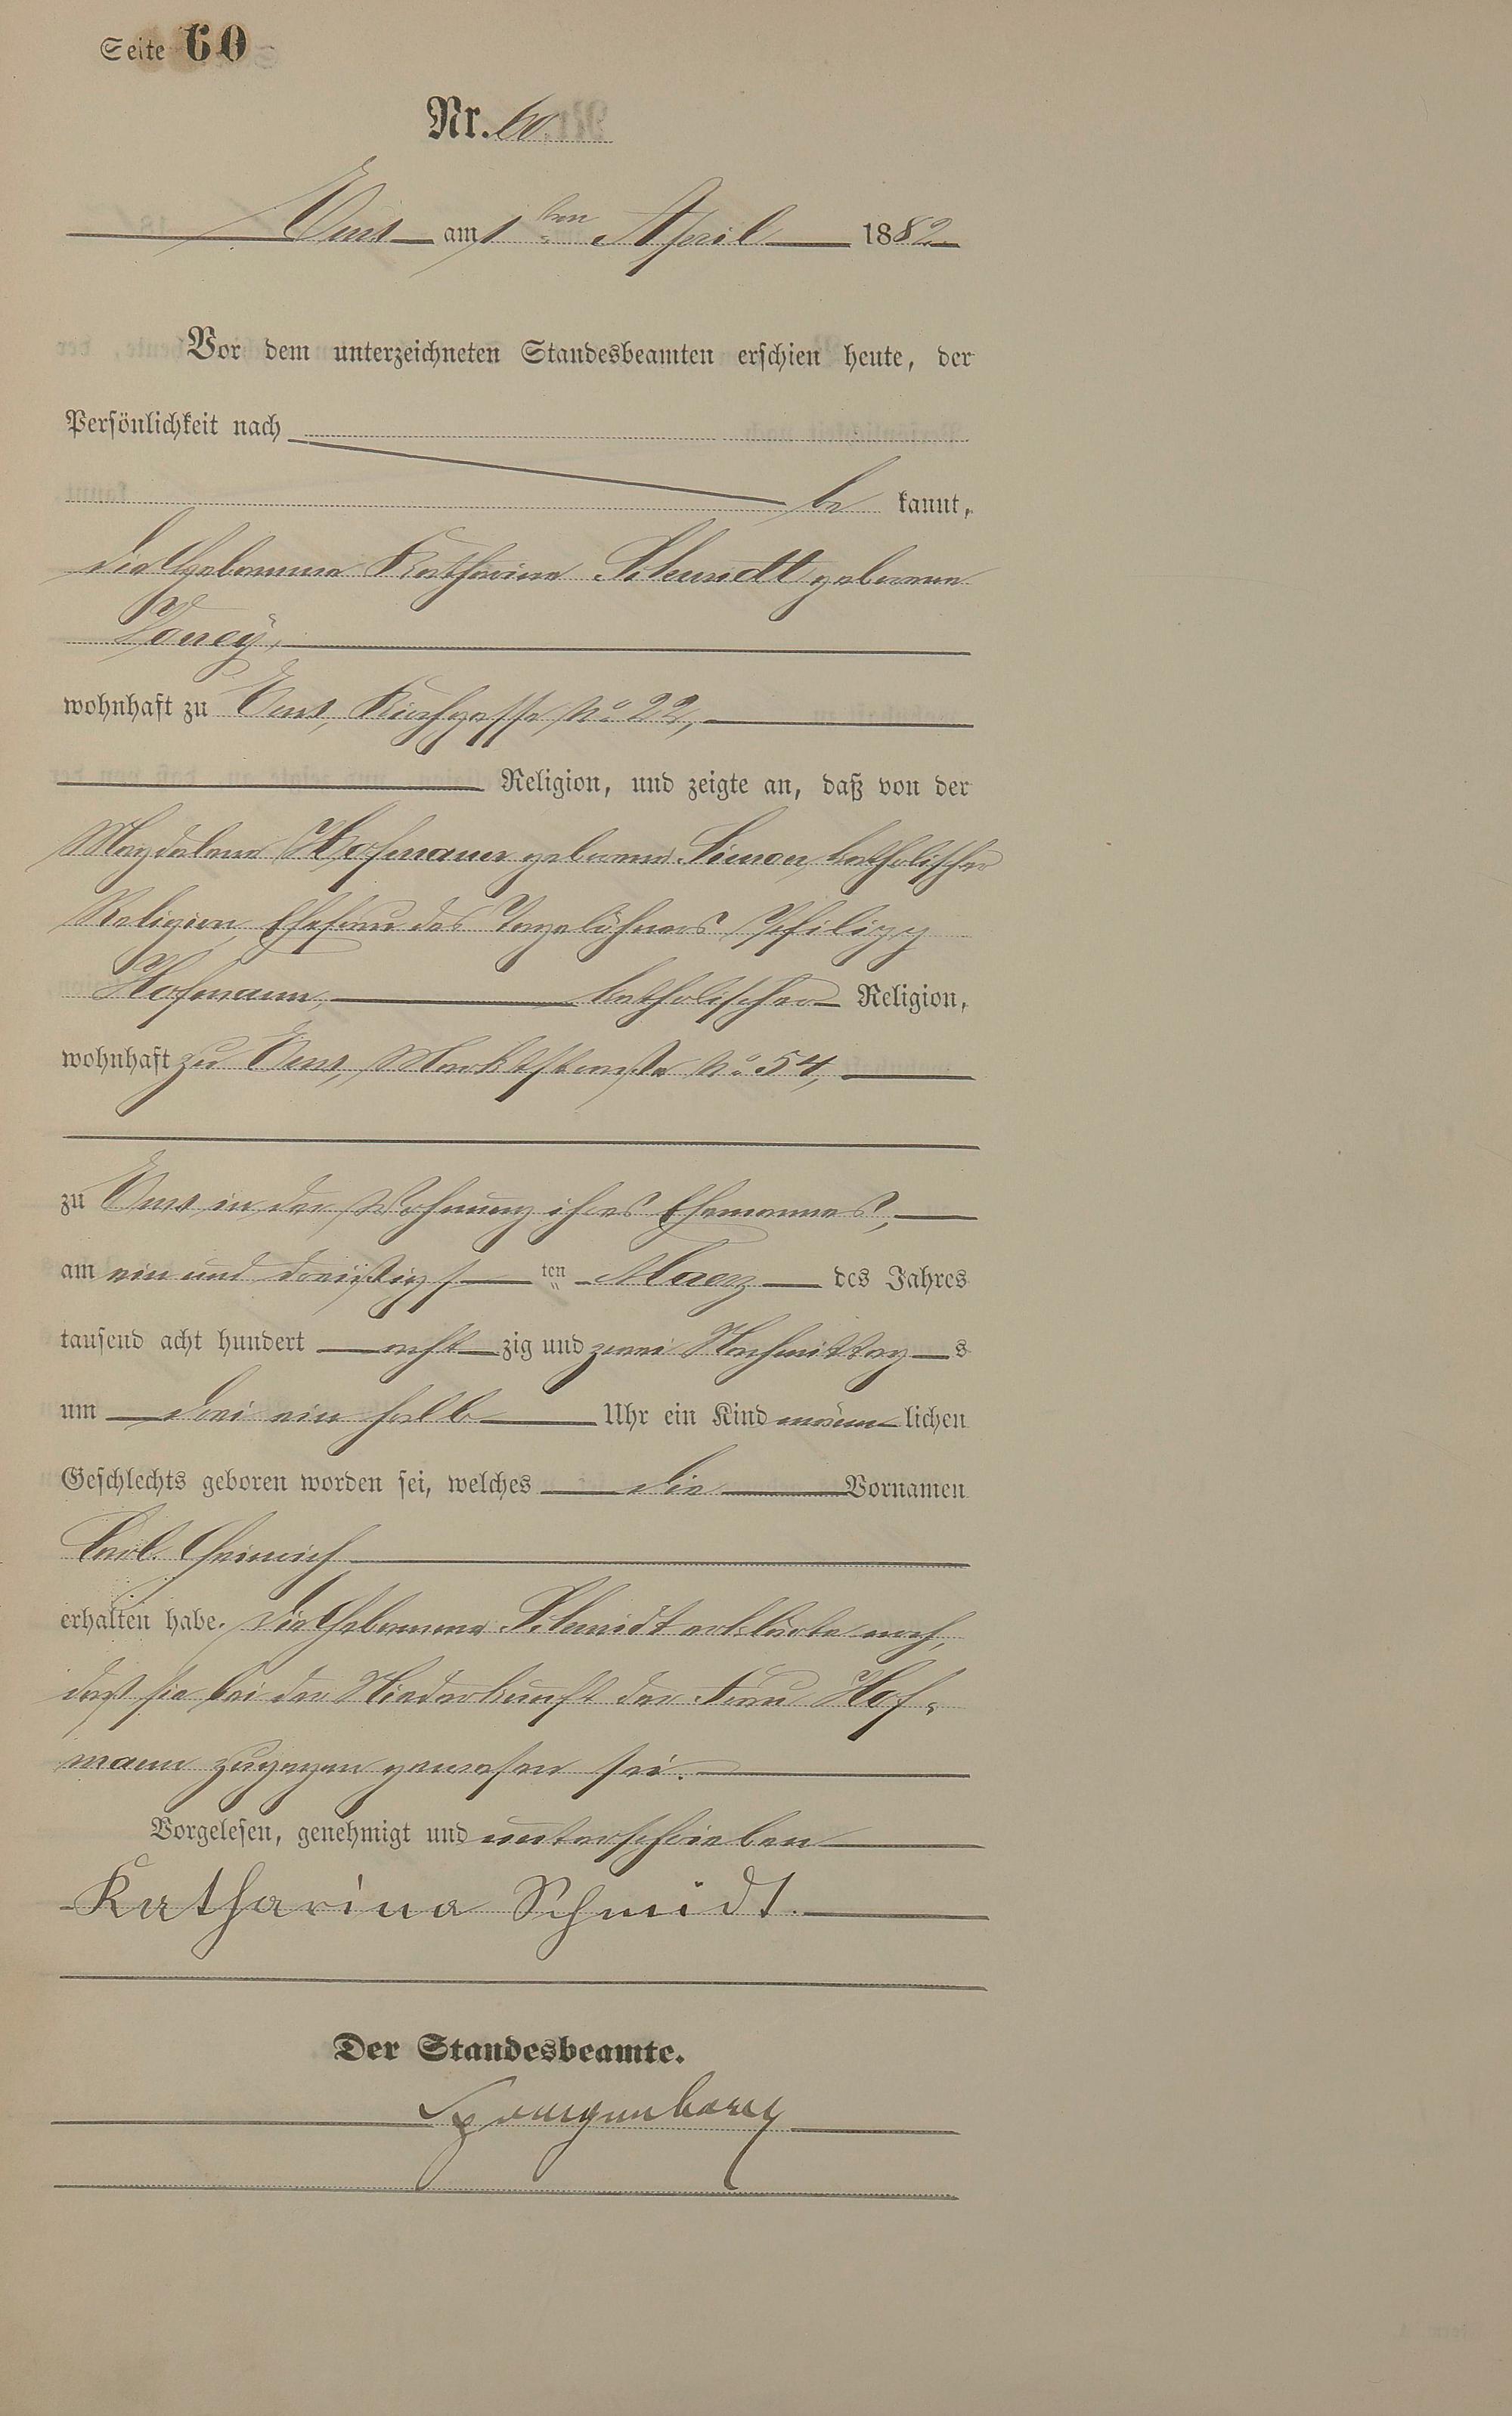 Seite 60
Nr. 60.
Ems am 1ten April 1882
Vor dem unterzeichneten Standesbeamten erschien heute, der
Persönlichkeit nach
be kannt,
die Hebamme Katharina Schmidt geborene
wohnhaft zu Ems, Kirchgasse No. 22,
Religion, und zeigte an, daß von der
Magdalena Hofmann geborene Simon, katholischer
Religion, Ehefrau des Tagelöhners Philipp
Hofmann, katholischer Religion,
wohnhaft zu Ems, Marktstraße No. 54,
zu Ems in der Wohnung ihres Ehemannes,
am ein und dreißigsten Maerz des Jahres
tausend acht hundert acht zig und zwei Nachmittags
um drei ein halb Uhr ein Kind männlichen
Geschlechts geboren worden sei, welches die Vornamen
Carl Heinrich
erhalten habe. Die Hebamme Schmidt erklärte noch,
daß sie bei der Niederkunft der Frau Hof-
mann zugegen gewesen sei.
Vorgelesen, genehmigt und unterschrieben
Katharina Schmidt.
Der Standesbeamte.
Spangenberg